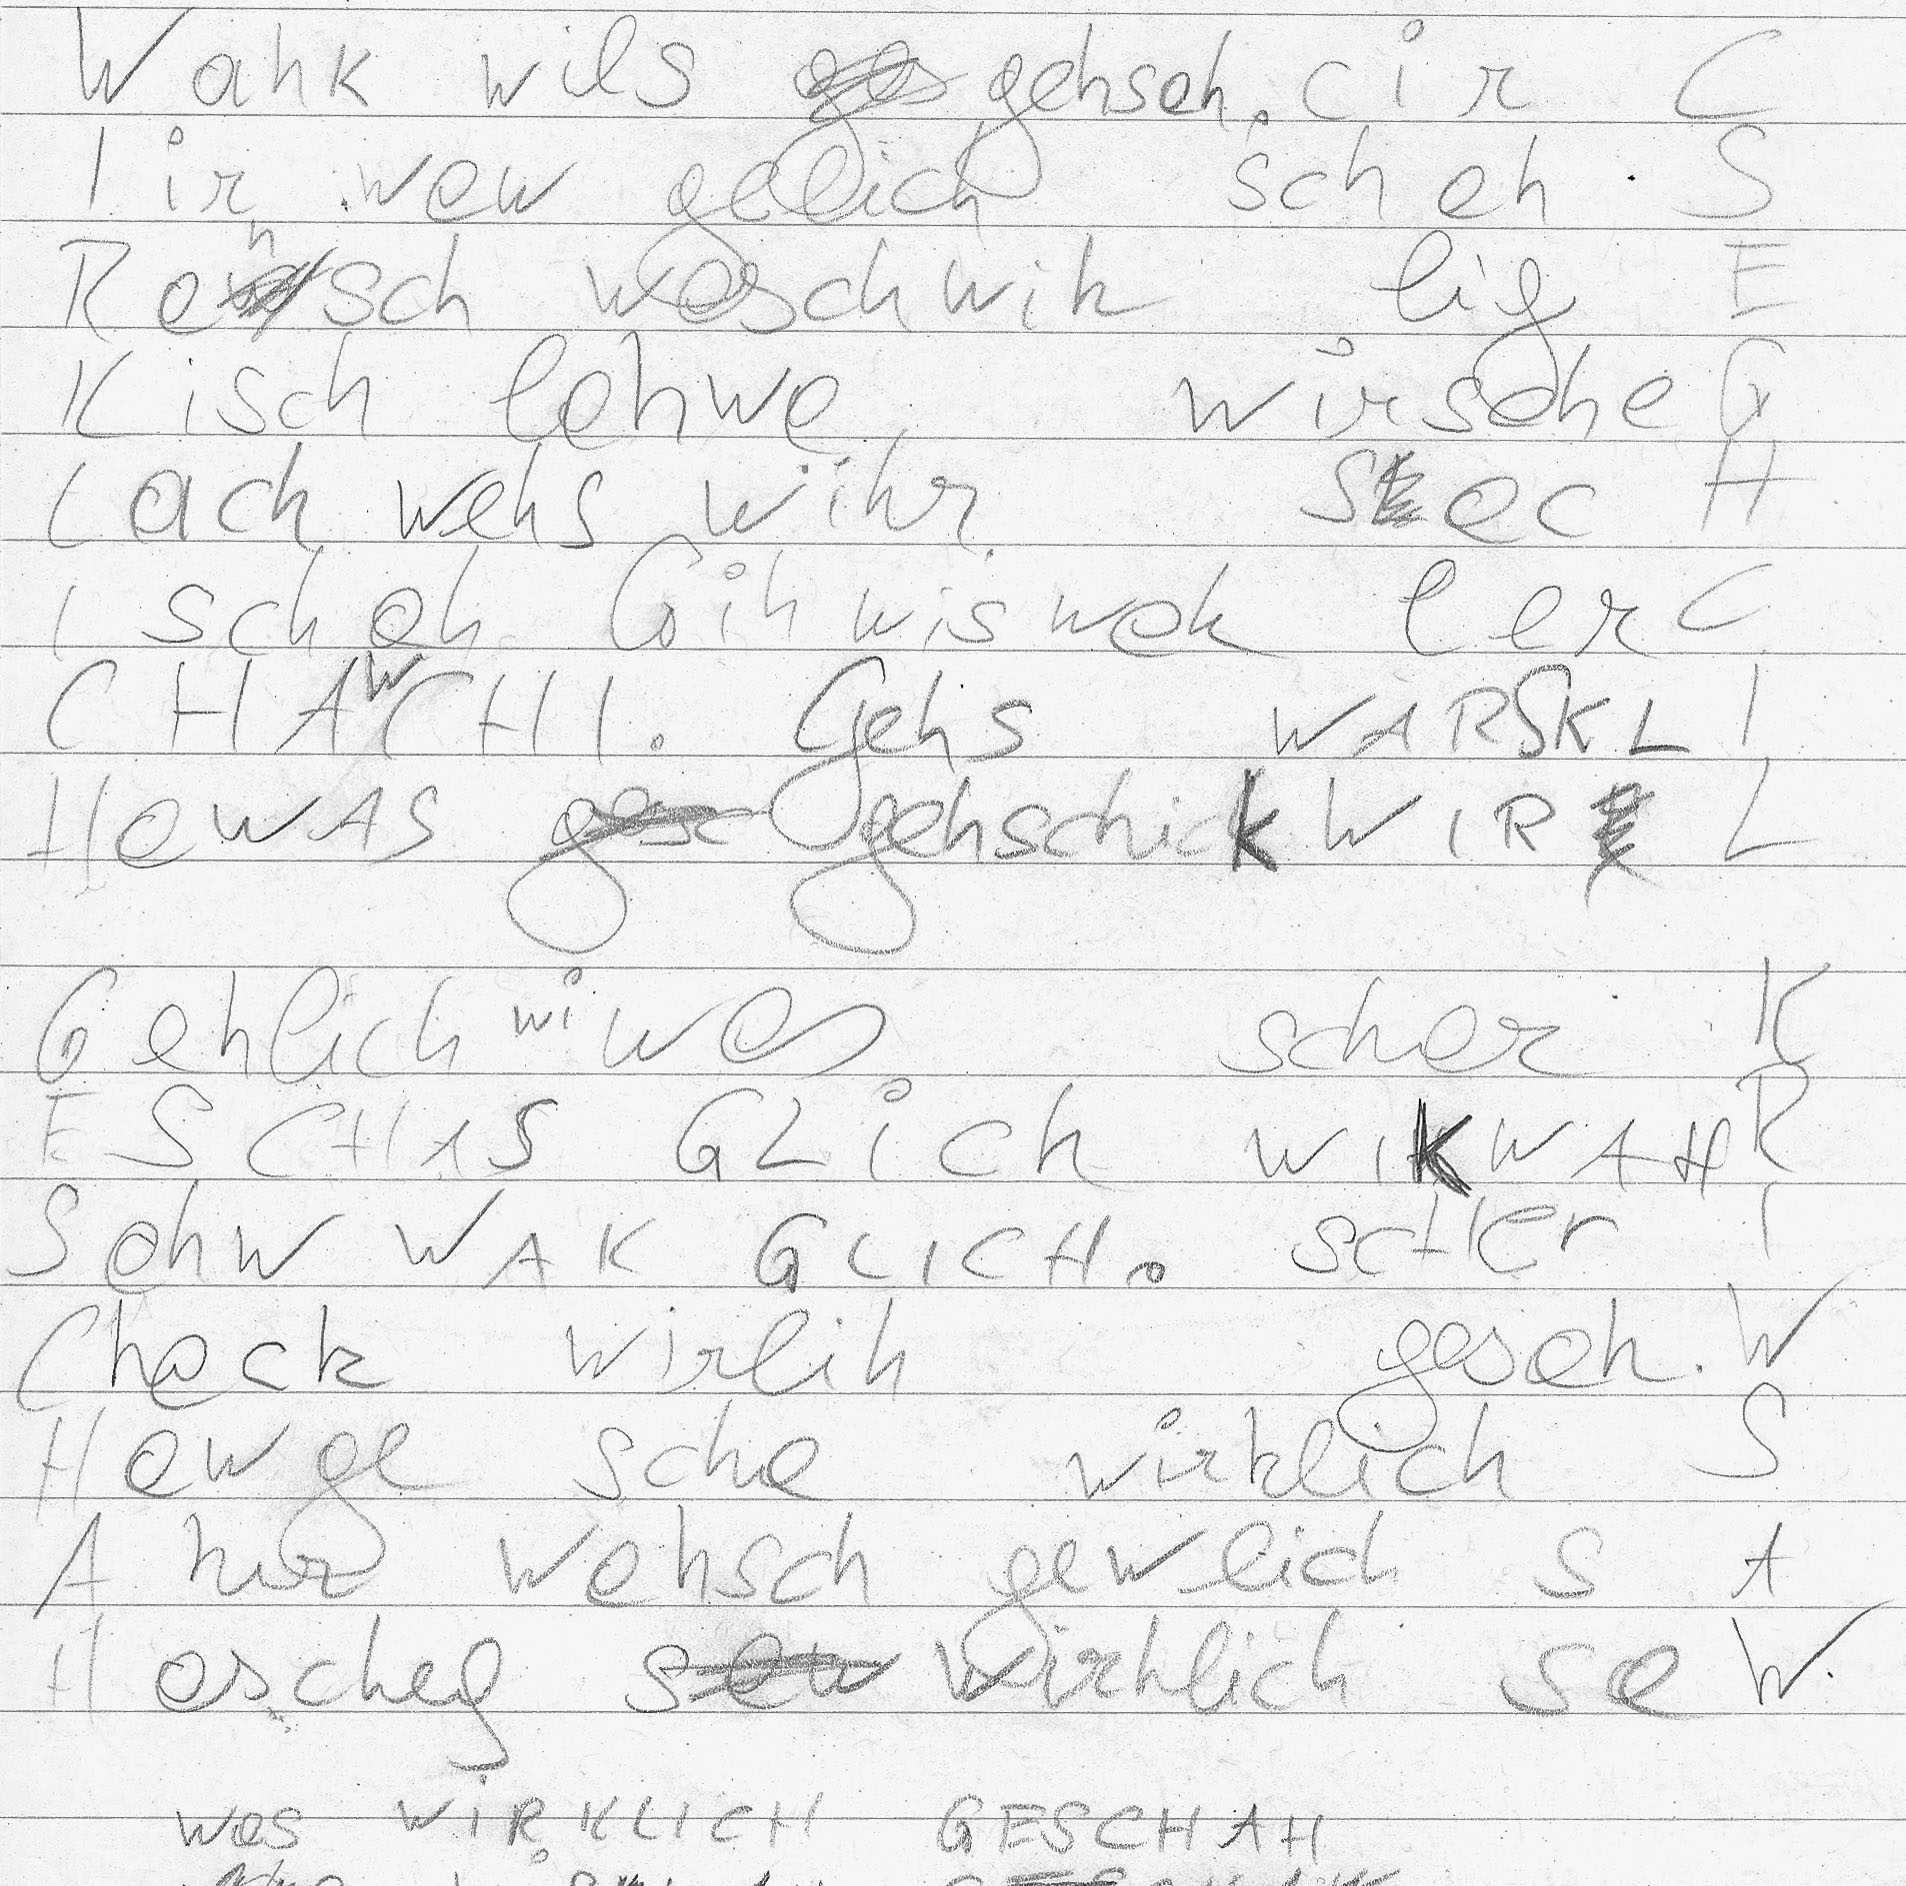 Wahk wils gehseh. cir C
I ir wew gelich sch eh S
Rehsch weschwik lig E
Kisch lehwe wirsehe G
Lach wehs wihr sec H
I scheh Gih wis wek ler C
CHAWCHI. Gehs WARSKL I
HeWAS gehschick WIR L
Gehlich wi wes scher K
ESCHAS GLICH WIKWAH R
Sehw WAK GLICH. SCHer I
Check wirlih geseh. W
Hewge sche wirklich S
A kir wehsch gewlich s A
H escheg wirklich se W.
Was WIRKLICH GESCHAH